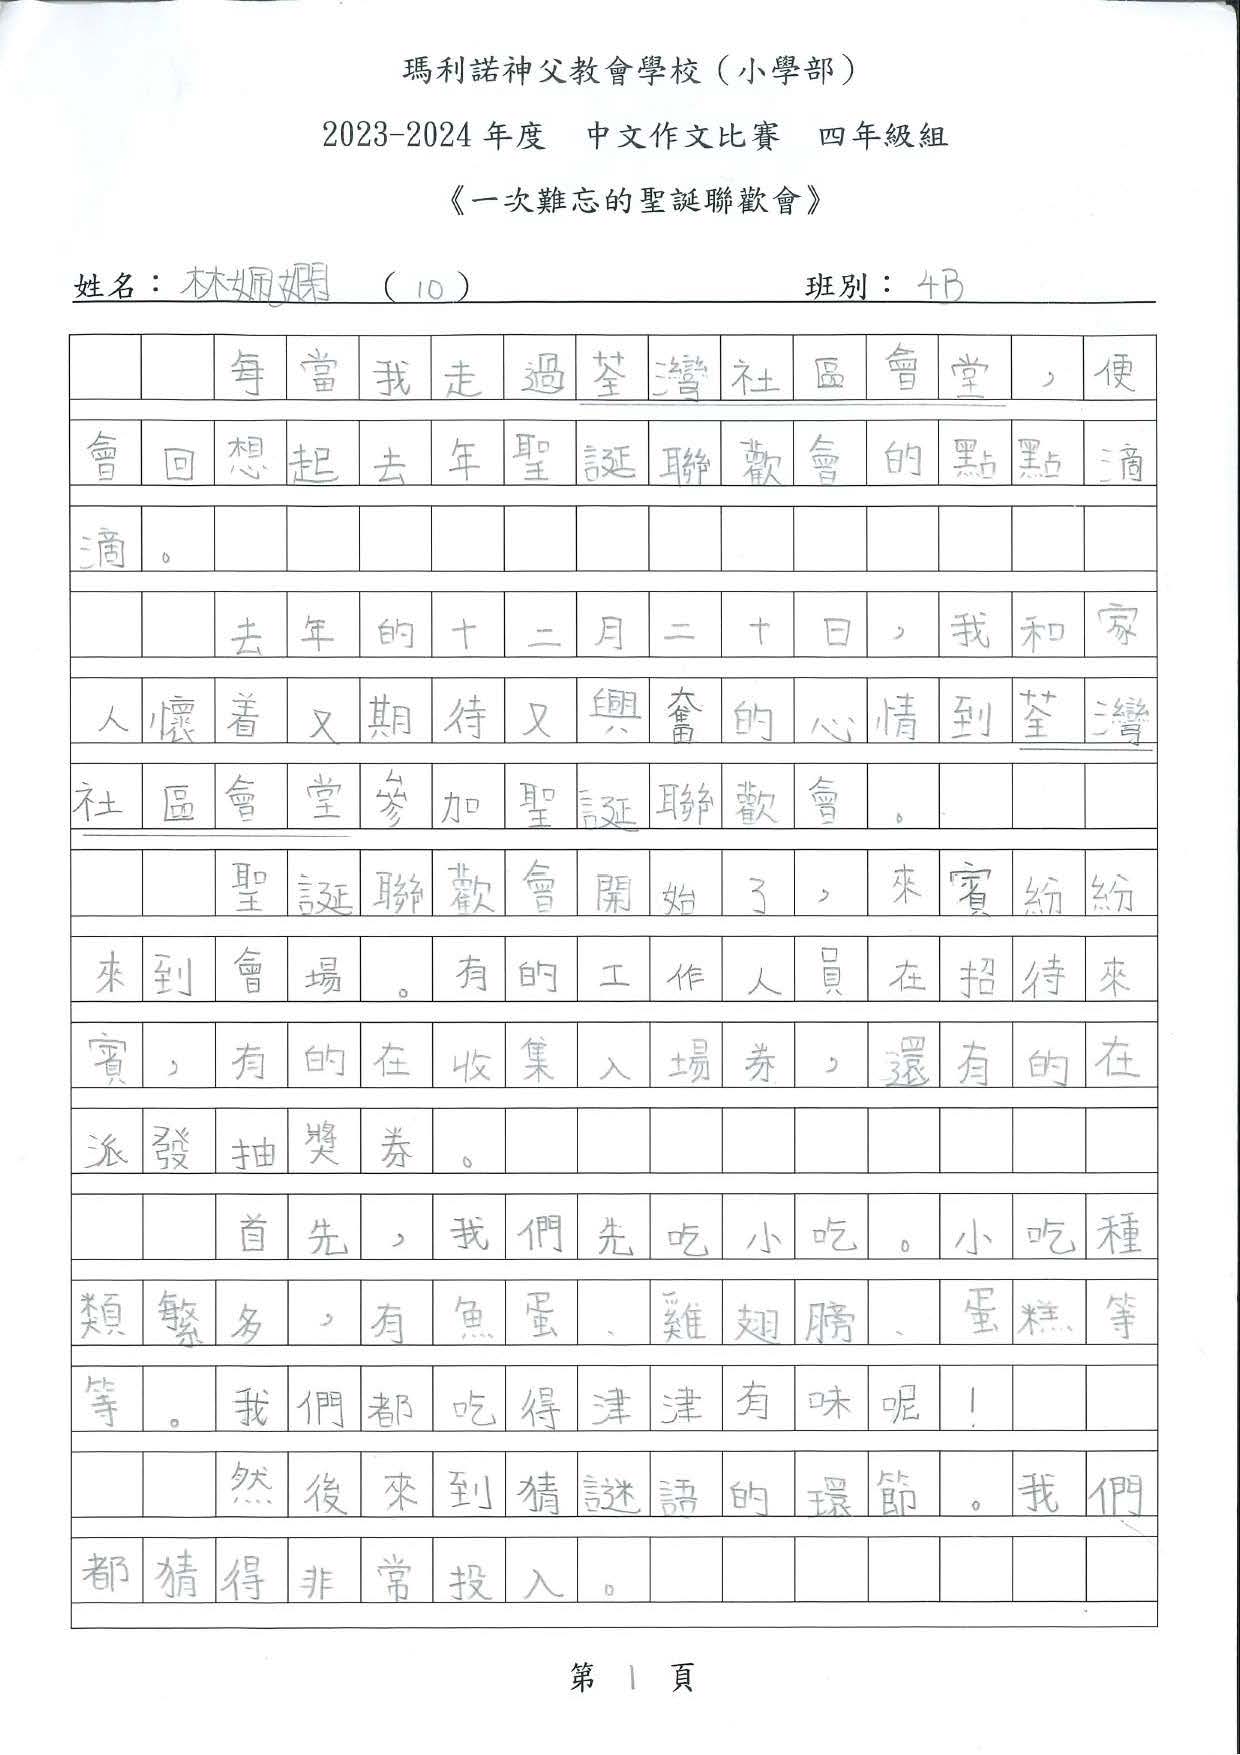 瑪利諾神父教會學校（小學部）
2023-2024 年度　中文作文比賽　四年級組
《一次難忘的聖誕聯歡會》
姓名：林姵嫺 （10） 班別：4B
每當我走過荃灣社區會堂，便
會回想起去年聖誕聯歡會的點點滴
滴。
去年的十二月二十日，我和家
人懷着又期待又興奮的心情到荃灣
社區會堂參加聖誕聯歡會。
聖誕聯歡會開始了，來賓紛紛
來到會場。有的工作人員在招待來
賓，有的在收集入場券，還有的在
派發抽獎券。
首先，我們先吃小吃。小吃種
類繁多，有魚蛋、雞翅膀、蛋糕等
等。我們都吃得津津有味呢！
然後來到猜謎語的環節。我們
都猜得非常投入。
第 1 頁